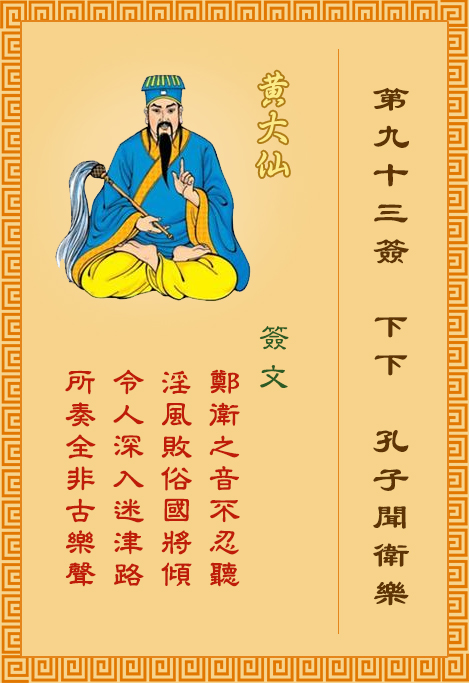 第九十三簽 下下 孔子聞衛樂
黃大仙
簽文
鄭衛之音不忍聽
淫風敗俗國將傾
令人深入迷津路
所奏全非古樂聲